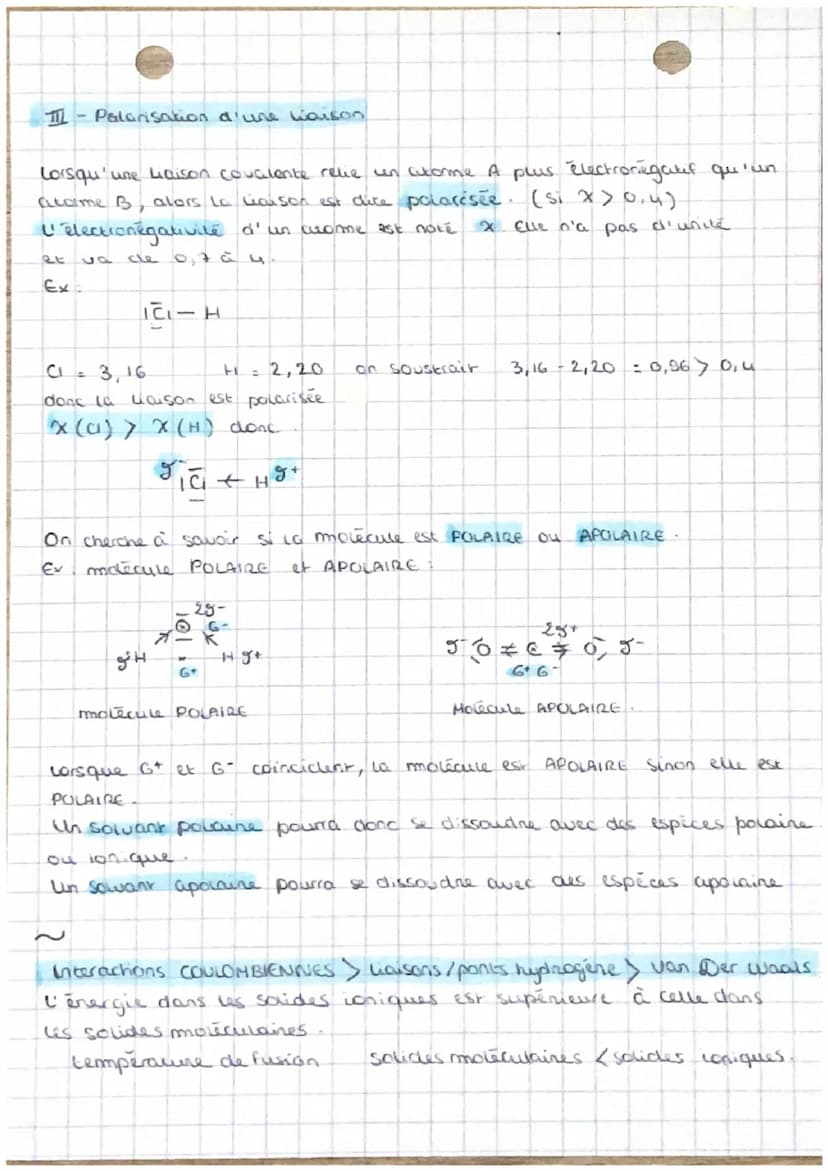 III - Polarisation d'une liaison
Lorsqu'une liaison covalente relie un atome A plus électronégatif qu'un
atome B, alors la liaison est dite polarisée. (si x > 0,4)
L'électronégativité d'un atome est noté x Elle n'a pas d'unité
et va de 0,7 à 4.
Ex :
|C̅l̲ — H
Cl = 3,16 H = 2,20 on soustrait 3,16 - 2,20 = 0,96 > 0,4
donc la liaison est polarisée
x(Cl) > x(H) donc
δ- |C̅l̲ ← H δ+
On cherche à savoir si la molécule est POLAIRE ou APOLAIRE.
Ex : molécule POLAIRE et APOLAIRE :
2δ-
O G-
δ+H H δ+
G+
2δ+
δ- O ≠ C ≠ O δ-
G+ G-
molécule POLAIRE
Molécule APOLAIRE.
Lorsque G+ et G- coincident, la molécule est APOLAIRE sinon elle est
POLAIRE.
Un solvant polaire pourra donc se dissoudre avec des espèces polaire
ou ionique.
Un solvant apolaire pourra se dissoudre avec des espèces apolaire
~
Interactions COULOMBIENNES > liaisons/ponts hydrogène > Van Der Waals
L'énergie dans les solides ioniques est supérieure à celle dans
les solides moléculaires.
température de fusion solides moléculaires < solides ioniques.